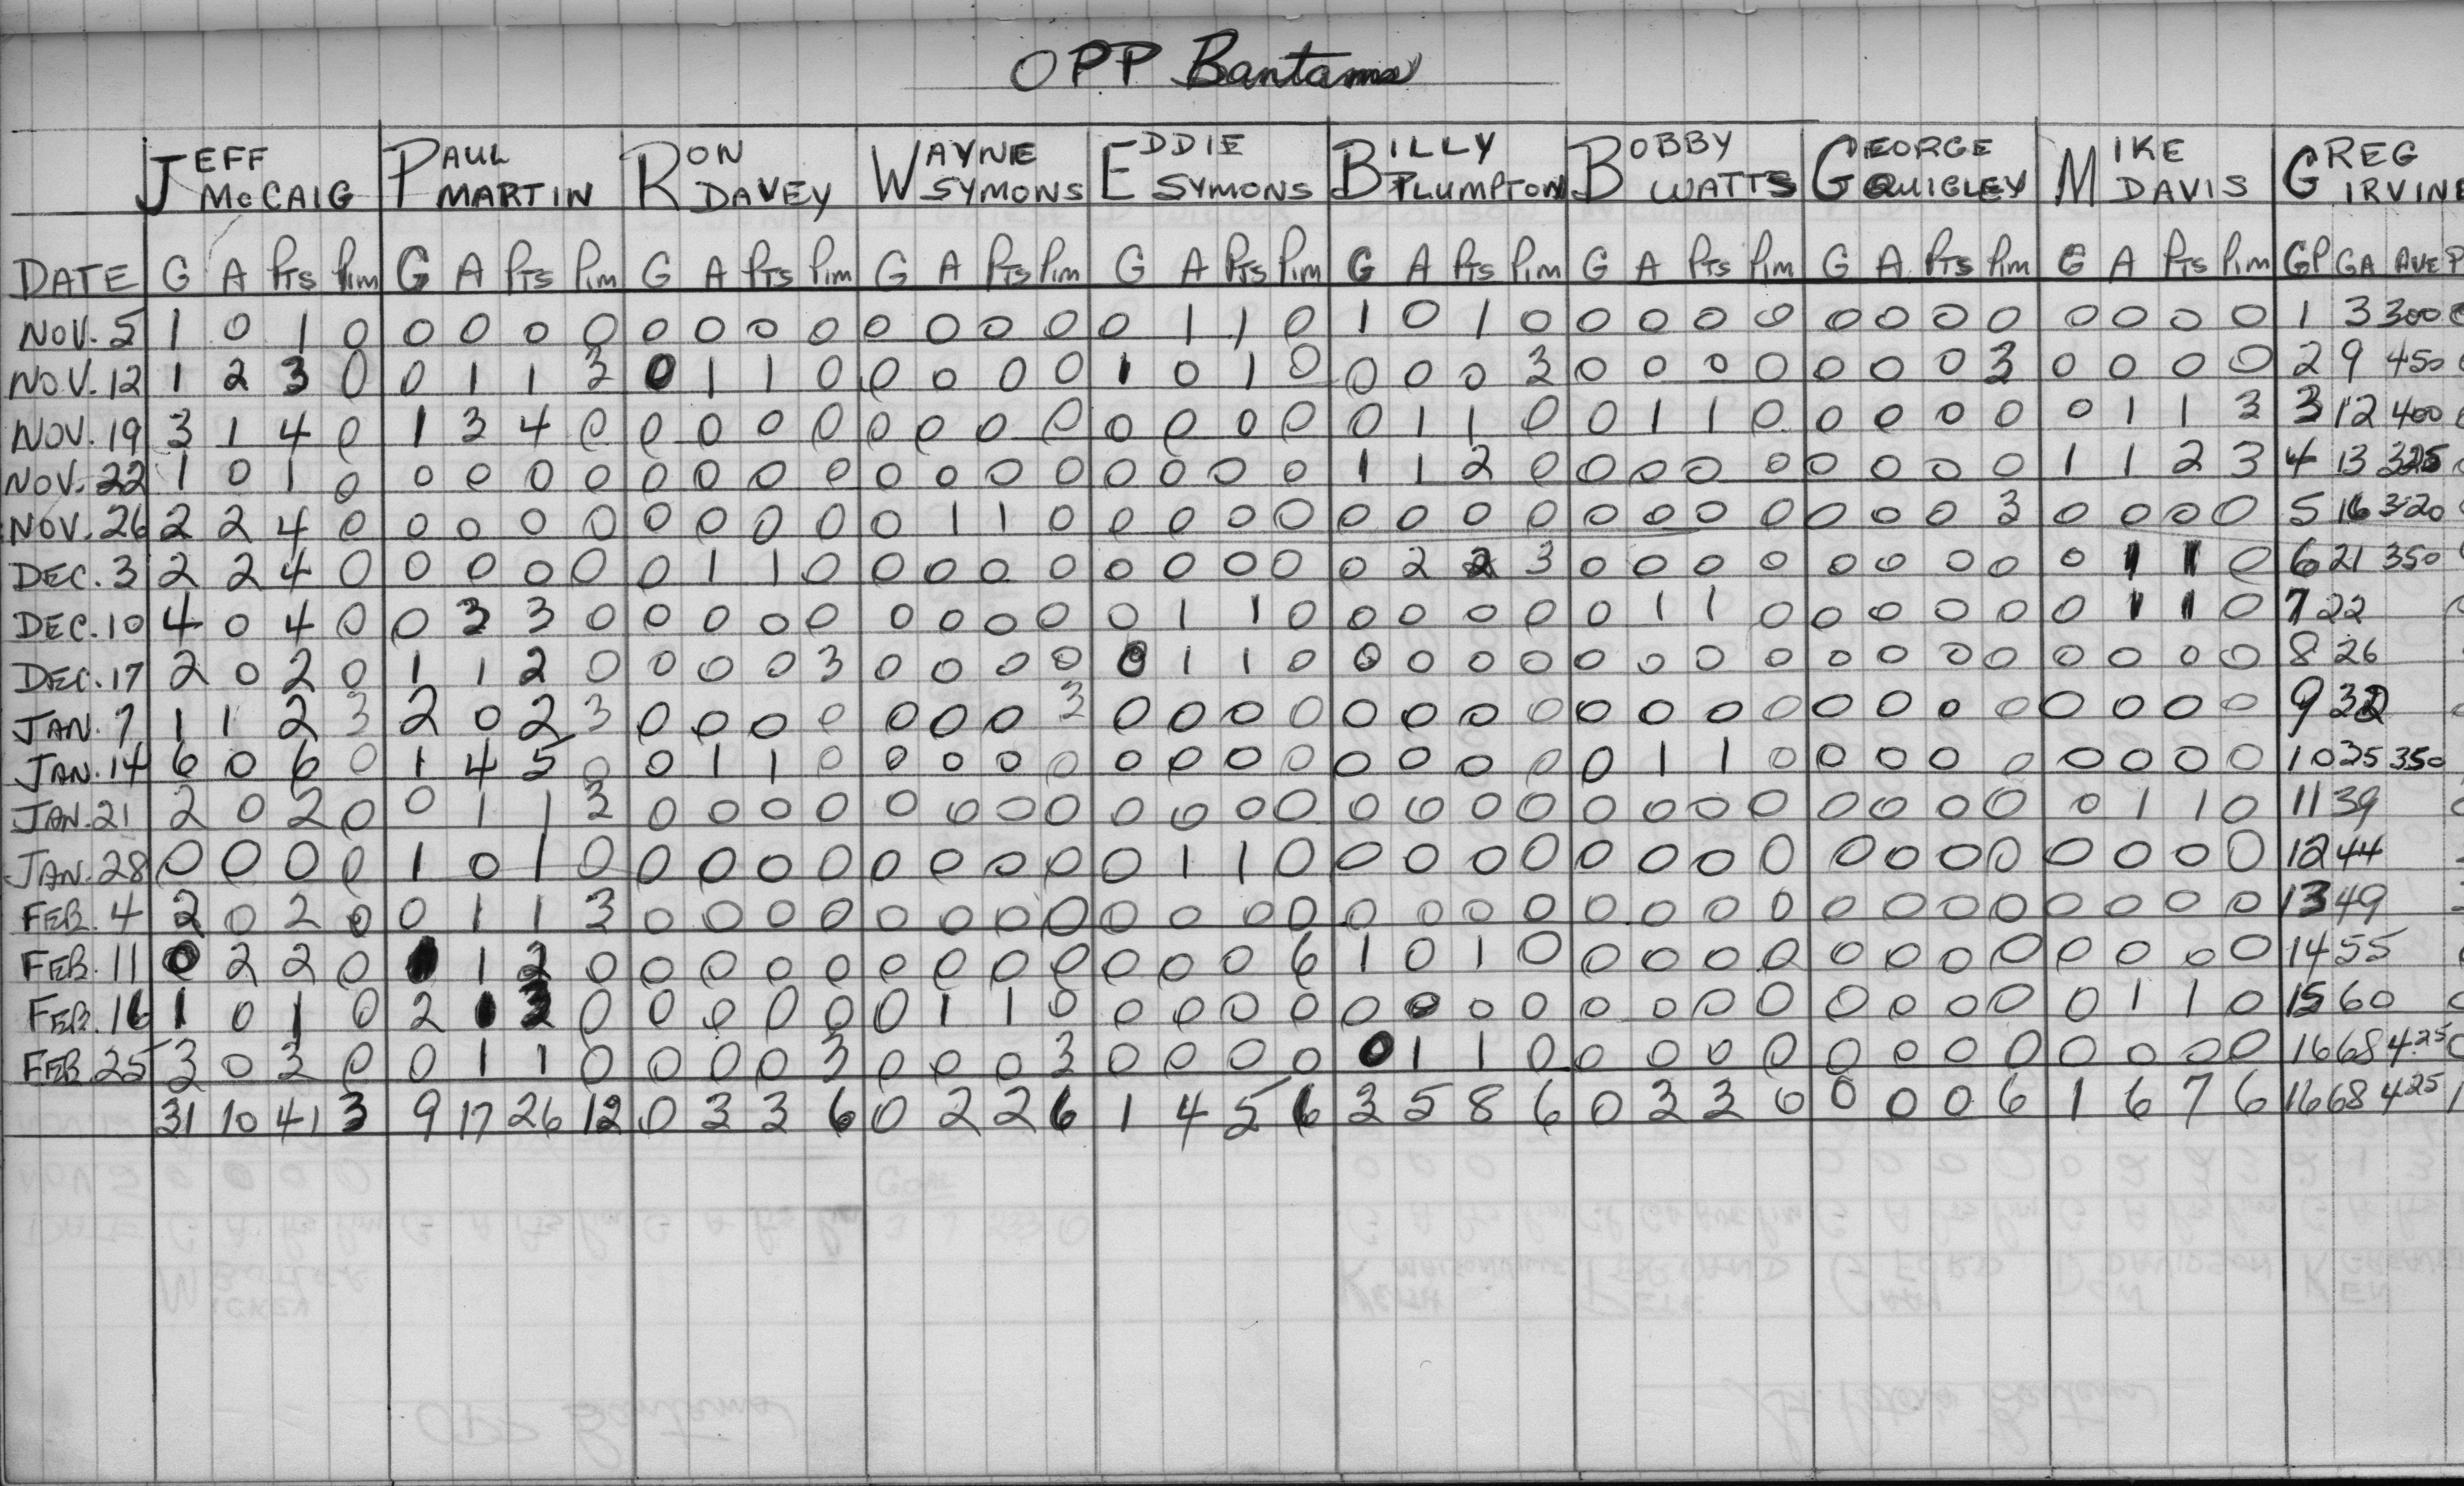 OPP Bantams
JEFF McCAIG PAUL MARTIN RON DAVEY WAYNE SYMONS EDDIE SYMONS BILLY PLUMPTON BOBBY WATTS GEORGE QUIGLEY MIKE DAVIS GREG IRVINE
DATE G A Pts Pim G A Pts Pim G A Pts Pim G A Pts Pim G A Pts Pim G A Pts Pim G A Pts Pim G A Pts Pim G A Pts Pim GP GA AVE P
NOV. 5 1 0 1 0 0 0 0 0 0 0 0 0 0 0 0 0 0 1 1 0 1 0 1 0 0 0 0 0 0 0 0 0 0 0 0 0 1 3 300
NOV. 12 1 2 3 0 0 1 1 3 0 1 1 0 0 0 0 0 1 0 1 0 0 0 0 3 0 0 0 0 0 0 0 3 0 0 0 0 2 9 450
NOV. 19 3 1 4 0 1 3 4 0 0 0 0 0 0 0 0 0 0 0 0 0 0 1 1 0 0 1 1 0 0 0 0 0 0 1 1 3 3 12 400
NOV. 22 1 0 1 0 0 0 0 0 0 0 0 0 0 0 0 0 0 0 0 0 1 1 2 0 0 0 0 0 0 0 0 0 1 1 2 3 4 13 325
NOV. 26 2 2 4 0 0 0 0 0 0 0 0 0 0 1 1 0 0 0 0 0 0 0 0 0 0 0 0 0 0 0 0 3 0 0 0 0 5 16 320
DEC. 3 2 2 4 0 0 0 0 0 0 1 1 0 0 0 0 0 0 0 0 0 0 2 2 3 0 0 0 0 0 0 0 0 0 1 1 0 6 21 350
DEC. 10 4 0 4 0 0 3 3 0 0 0 0 0 0 0 0 0 0 1 1 0 0 0 0 0 0 1 1 0 0 0 0 0 0 1 1 0 7 22
DEC. 17 2 0 2 0 1 1 2 0 0 0 0 3 0 0 0 0 0 1 1 0 0 0 0 0 0 0 0 0 0 0 0 0 0 0 0 0 8 26
JAN. 7 1 1 2 3 2 0 2 3 0 0 0 0 0 0 0 3 0 0 0 0 0 0 0 0 0 0 0 0 0 0 0 0 0 0 0 0 9 32
JAN. 14 6 0 6 0 1 4 5 0 0 1 1 0 0 0 0 0 0 0 0 0 0 0 0 0 0 1 1 0 0 0 0 0 0 0 0 0 10 35 350
JAN. 21 2 0 2 0 0 1 1 3 0 0 0 0 0 0 0 0 0 0 0 0 0 0 0 0 0 0 0 0 0 0 0 0 0 1 1 0 11 39
JAN. 28 0 0 0 0 1 0 1 0 0 0 0 0 0 0 0 0 0 1 1 0 0 0 0 0 0 0 0 0 0 0 0 0 0 0 0 0 12 44
FEB. 4 2 0 2 0 0 1 1 3 0 0 0 0 0 0 0 0 0 0 0 0 0 0 0 0 0 0 0 0 0 0 0 0 0 0 0 0 13 49
FEB. 11 0 2 2 0 1 1 2 0 0 0 0 0 0 0 0 0 0 0 0 6 1 0 1 0 0 0 0 0 0 0 0 0 0 0 0 0 14 55
FEB. 16 1 0 1 0 2 1 3 0 0 0 0 0 0 1 1 0 0 0 0 0 0 0 0 0 0 0 0 0 0 0 0 0 0 1 1 0 15 60
FEB. 25 3 0 3 0 0 1 1 0 0 0 0 3 0 0 0 3 0 0 0 0 0 1 1 0 0 0 0 0 0 0 0 0 0 0 0 0 16 68 4.25
31 10 41 3 9 17 26 12 0 3 3 6 0 2 2 6 1 4 5 6 3 5 8 6 0 3 3 0 0 0 0 6 1 6 7 6 16 68 4.25